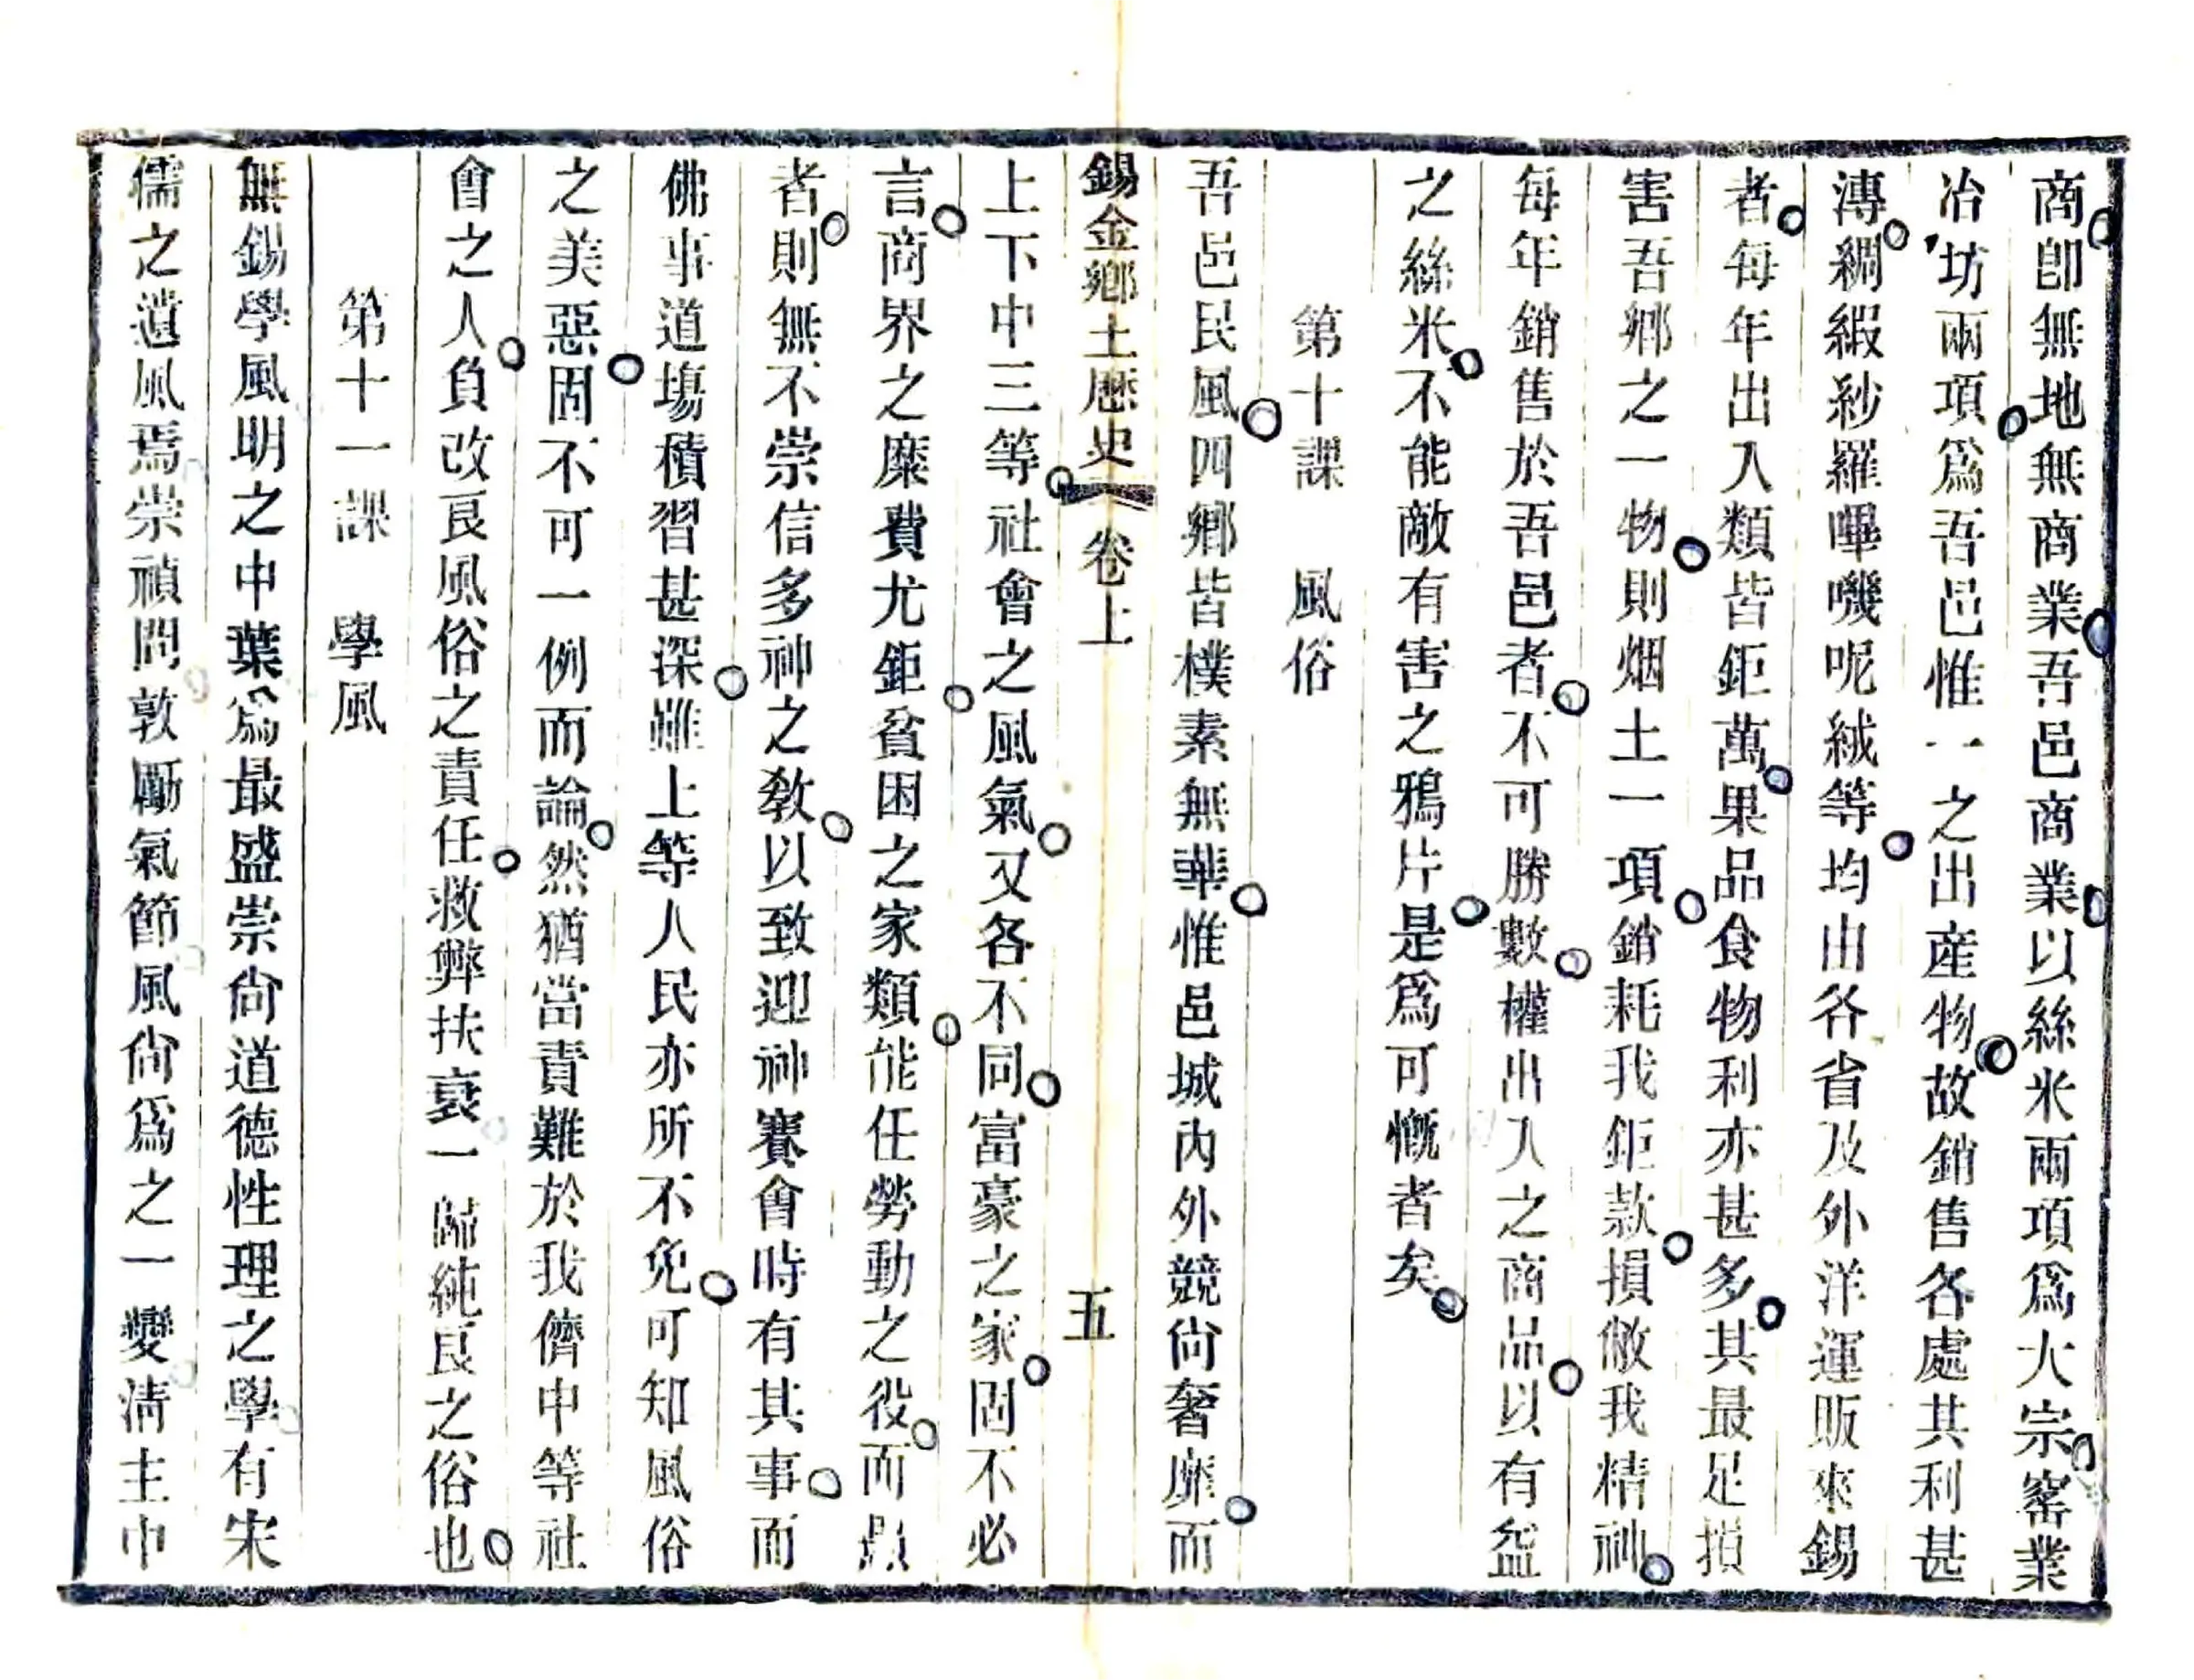 商卽無地無商業吾邑商業以絲米兩項爲大宗窰業
冶坊兩項爲吾邑惟一之出産物故銷售各處其利甚
溥綢緞紗羅嗶嘰呢絨等均由各省及外洋運販來錫
者每年出入類皆鉅萬果品食物利亦甚多其最足損
害吾鄕之一物則烟土一項銷耗我鉅款損敝我精神
每年銷售於吾邑者不可勝數權出入之商品以有益
之絲米不能敵有害之鴉片是爲可慨者矣
第十課　風俗
吾邑民風四鄕皆樸素無華惟邑城內外競尙奢靡而
錫金鄕土歷史　卷上　五
上下中三等社會之風氣又各不同富豪之家固不必
言商界之糜費尤鉅貧困之家類能任勞動之役而點
者則無不崇信多神之敎以致迎神賽會時有其事而
佛事道塲積習甚深雖上等人民亦所不免可知風俗
之美惡固不可一例而論然猶當責難於我儕中等社
會之人負改良風俗之責任救弊扶衰一歸純良之俗也
第十一課　學風
無錫學風明之中葉爲最盛崇尙道德性理之學有宋
儒之遺風焉崇禎間敦厲氣節風尙爲之一變淸主中